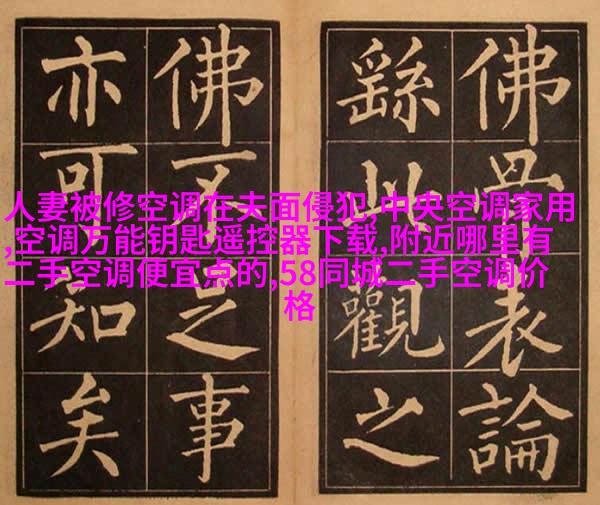 佛骨表論
繇此觀之
佛不足事
亦可知矣
人妻被修空调在夫面侵犯,中央空调家用
,空调万能钥匙遥控器下载,附近哪里有
二手空调便宜点的,58同城二手空调价
格